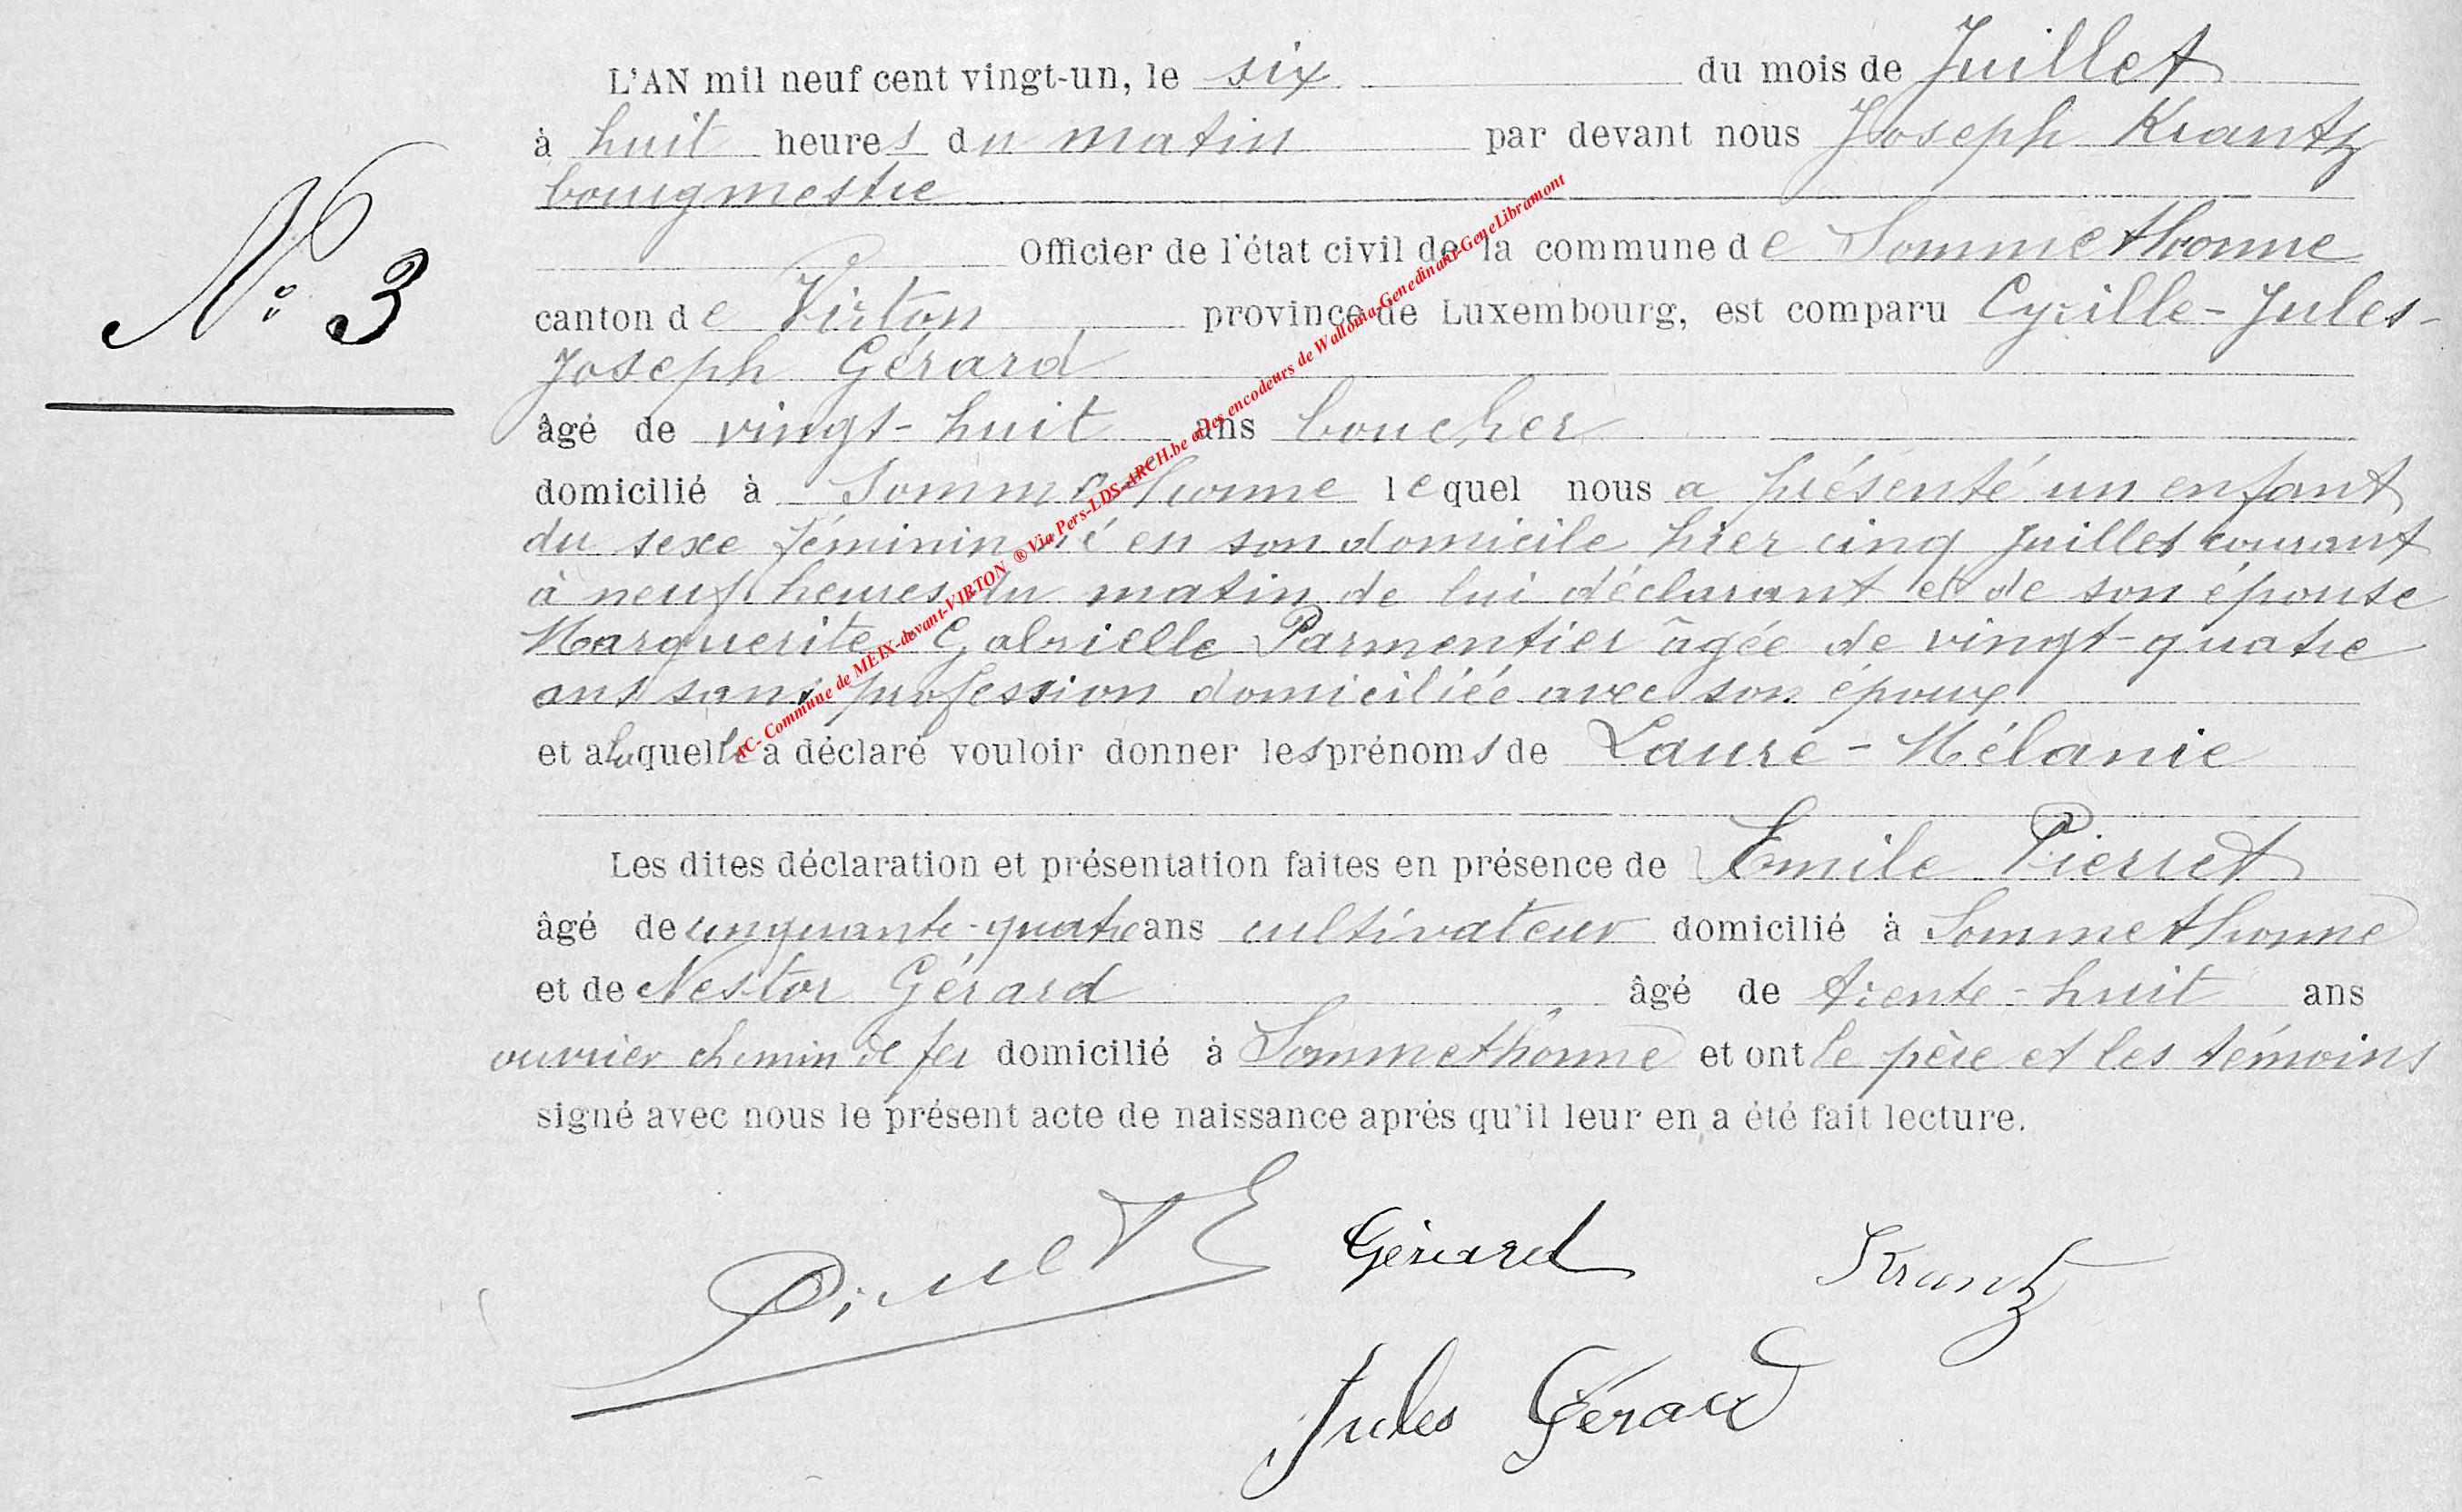 L'AN mil neuf cent vingt-un, le six du mois de Juillet
à huit heures du matin par devant nous Joseph Krantz
bourgmestre
Officier de l'état civil de la commune de Sommethonne
N° 3
canton de Virton province de Luxembourg, est comparu Cyrille-Jules-
Joseph Gérard
âgé de vingt-huit ans boucher
domicilié à Sommethonne lequel nous a présenté un enfant
du sexe féminin né en son domicile hier cinq Juillet courant
à neuf heures du matin de lui déclarant et de son épouse
Marguerite Gabrielle Parmentier âgée de vingt-quatre
ans sans profession domiciliée avec son époux
et a laquelle a déclaré vouloir donner les prénoms de Laure-Mélanie
Les dites déclaration et présentation faites en présence de Emile Pierret
âgé de cinquante-quatre ans cultivateur domicilié à Sommethonne
et de Nestor Gérard âgé de trente-huit ans
ouvrier chemin de fer domicilié à Sommethonne et ont le père et les témoins
signé avec nous le présent acte de naissance après qu'il leur en a été fait lecture.
Pierret E Gérard Krantz
Jules Gérard
AC- Commune de MEIX-devant-VIRTON ® Via Pers-LDS-ARCH.be et les encodeurs de Wallonia-Genedinant-GeneLibramont